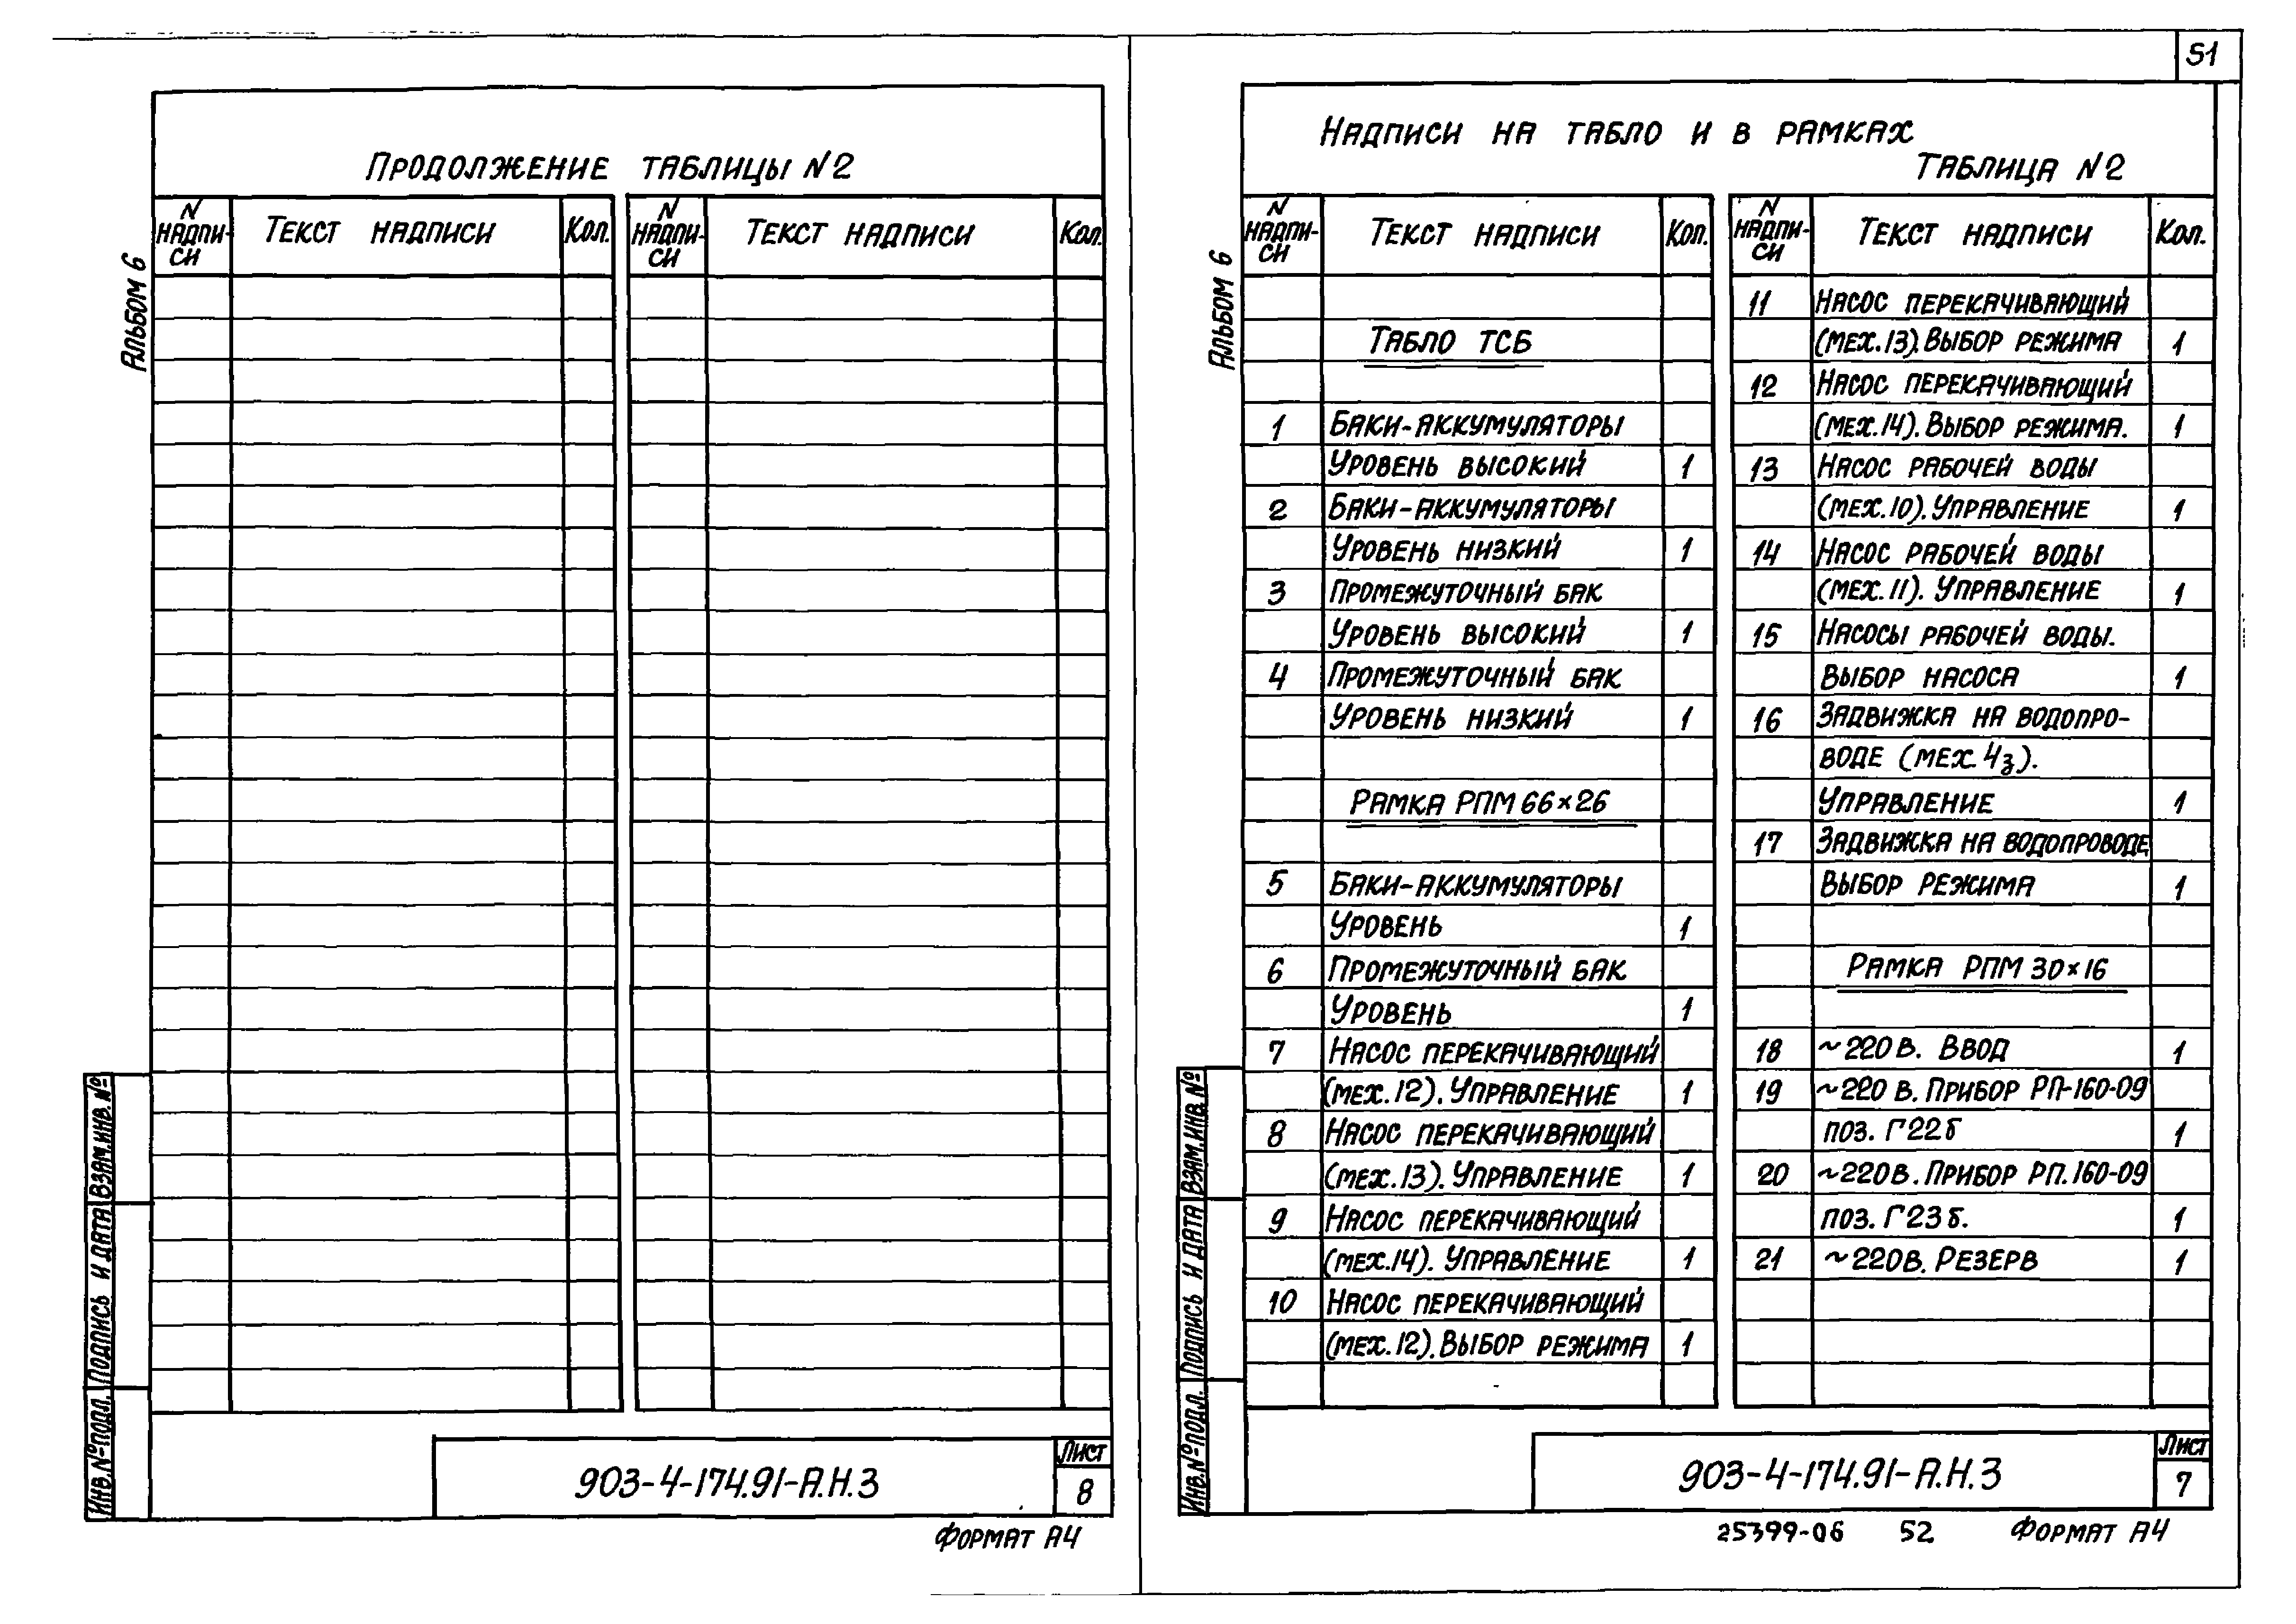 Альбом 6
Продолжение таблицы N2
N надпи-си Текст надписи Кол. N надпи-си Текст надписи Кол.
Взам.инв.№
Подпись и дата
Инв.№подл.
903-4-174.91-А.Н.3
Лист
8
Формат А4
51
Альбом 6
Надписи на табло и в рамках
Таблица N2
N надпи-си Текст надписи Кол.
Табло ТСБ
1 Баки-аккумуляторы
Уровень высокий 1
2 Баки-аккумуляторы
Уровень низкий 1
3 Промежуточный бак
Уровень высокий 1
4 Промежуточный бак
Уровень низкий 1
Рамка РПМ 66×26
5 Баки-аккумуляторы
Уровень 1
6 Промежуточный бак
Уровень 1
7 Насос перекачивающий
(мех.12). Управление 1
8 Насос перекачивающий
(мех.13). Управление 1
9 Насос перекачивающий
(мех.14). Управление 1
10 Насос перекачивающий
(мех.12). Выбор режима 1
N надпи-си Текст надписи Кол.
11 Насос перекачивающий
(мех.13). Выбор режима 1
12 Насос перекачивающий
(мех.14). Выбор режима. 1
13 Насос рабочей воды
(мех.10). Управление 1
14 Насос рабочей воды
(мех.11). Управление 1
15 Насосы рабочей воды.
Выбор насоса 1
16 Задвижка на водопро-
воде (мех.4з).
Управление 1
17 Задвижка на водопроводе
Выбор режима 1
Рамка РПМ 30×16
18 ~220 В. Ввод 1
19 ~220 В. Прибор РП-160-09
поз. Г22б 1
20 ~220 В. Прибор РП.160-09
поз. Г23б. 1
21 ~220В. Резерв 1
Взам.инв.№
Подпись и дата
Инв.№подл.
903-4-174.91-А.Н.3
Лист
7
25399-06 52 Формат А4